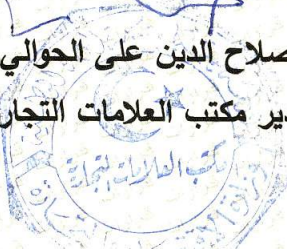 صلاح الدين على الحوالي
دير مكتب العلامات التجار
مكتب العلامات التجارية